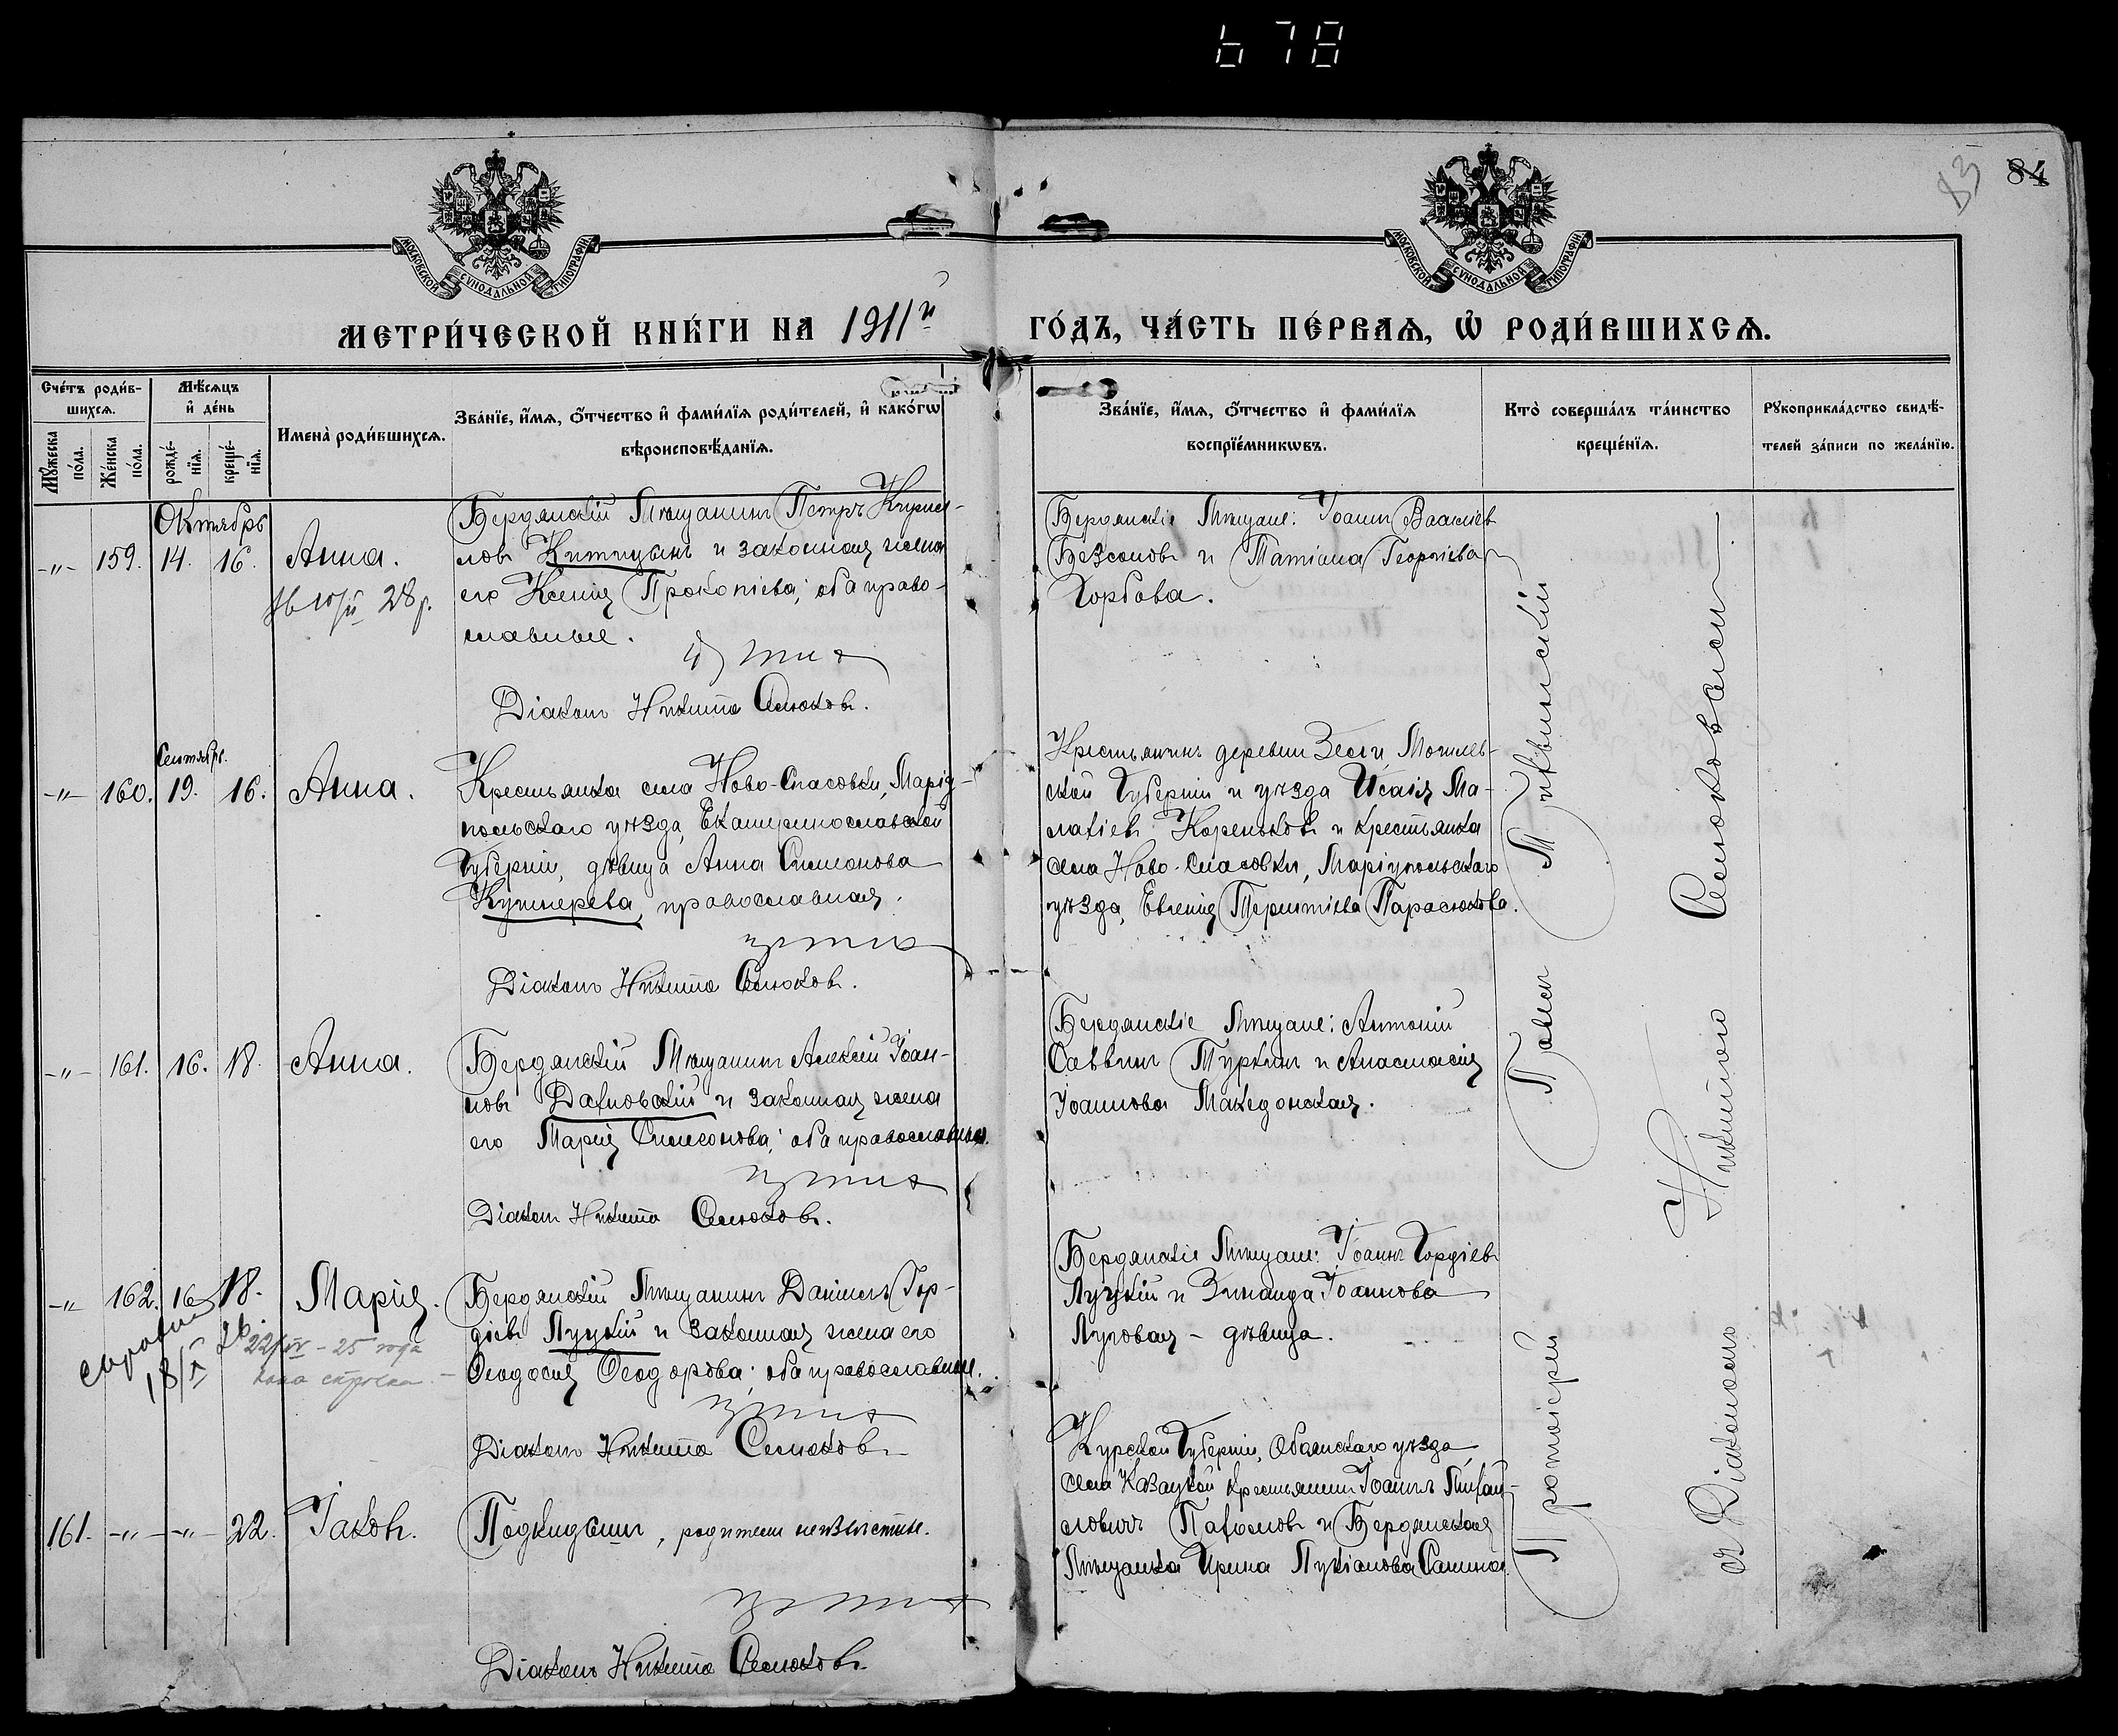 678
83
84
МОСКОВСКОЙ СѴНОДАЛЬНОЙ ТИПОГРАФІИ
МОСКОВСКОЙ СѴНОДАЛЬНОЙ ТИПОГРАФІИ
МЕТРИ́ЧЕСКОЙ КНИ́ГИ НА 1911й ГО́ДЪ, ЧА́СТЬ ПЕ́РВАѦ, Ѡ҆ РОДИ́ВШИХСѦ.
Сче́тъ роди́в-
шихсѧ.
Мꙋ́жеска
по́ла.
Же́нска
по́ла.
Мѣ́сѧцъ
и҆ де́нь
рожде́-
нїѧ.
креще́-
нїѧ.
Имена̀ роди́вшихсѧ.
Зва́нїе, и҆́мѧ, ѻ҆́тчество и҆ фами́лїѧ роди́телей, и҆ како́гѡ
вѣроисповѣ́данїѧ.
Зва́нїе, и҆́мѧ, ѻ҆́тчество и҆ фами́лїѧ
воспрїе́мникѡвъ.
Кто̀ соверша́лъ та́инство
креще́нїѧ.
Рꙋкоприкла́дство свидѣ́-
телей за́писи по жела́нїю.
Октябрь
-"- 159. 14. 16. Анна.
28 г.
Бердянскій Мѣщанинъ Петръ Кирил-
ловъ и законная жена
его Ксенія Прокопіева; оба право-
славные.
Діаконъ Никита Селюковъ.
Бердянскіе Мѣщане: Іоаннъ Василіев
Безсоновъ и Татіана Георгіева
Горбова.
Сентябрь.
-"- 160. 19. 16. Анна.
Крестьянка села Ново-Спасовки, Марiу-
польскаго уѣзда, Екатеринославской
Губерніи, дѣвица Анна Симонова
Кушнерева, православная.
Діаконъ Никита Селюковъ.
Крестьянинъ деревни Могилев-
ской Губерніи и уѣзда Исаія Ма-
лахіевъ Кореньковъ и крестьянка
села Ново-Спасовки, Маріупольскаго
уѣзда, Евгенія Терентіева Парасюкова.
-"- 161. 16. 18. Анна.
Бердянскій Мѣщанинъ Алексій Іоан-
новъ Дахновскій и законная жена
его Марія Симеонова; оба православные.
Діаконъ Никита Селюковъ.
Бердянскіе Мѣщане: Антоній
Саввинъ Туркинъ и Анастасія
Іоаннова Македонская.
-"- 162. 16 18. Марія.
22/IV - 25 года
18/X
Бердянскій Мѣщанинъ Даніилъ Гор-
діевъ Луцкій и законная жена его
Ѳеодосія Ѳеодорова; оба православные.
Діаконъ Никита Селюковъ
Бердянскіе Мѣщане: Іоаннъ Гордіевъ
Луцкій и Зинаида Іоаннова
Луговая - дѣвица.
161. -"- -"- 22. Іаковъ.
Подкидышъ, родители неизвѣстны.
Діаконъ Никита Селюковъ
Курской Губерніи, Обоянскаго уѣзда
села Казацкой крестьянинъ Іоаннъ Михай-
ловичъ Пахомовъ и Бердянская
Мѣщанка Ирина Лукіанова Санина
Протоіерей Павелъ Тихвинскій
съ Діакономъ Никитою Селюковымъ